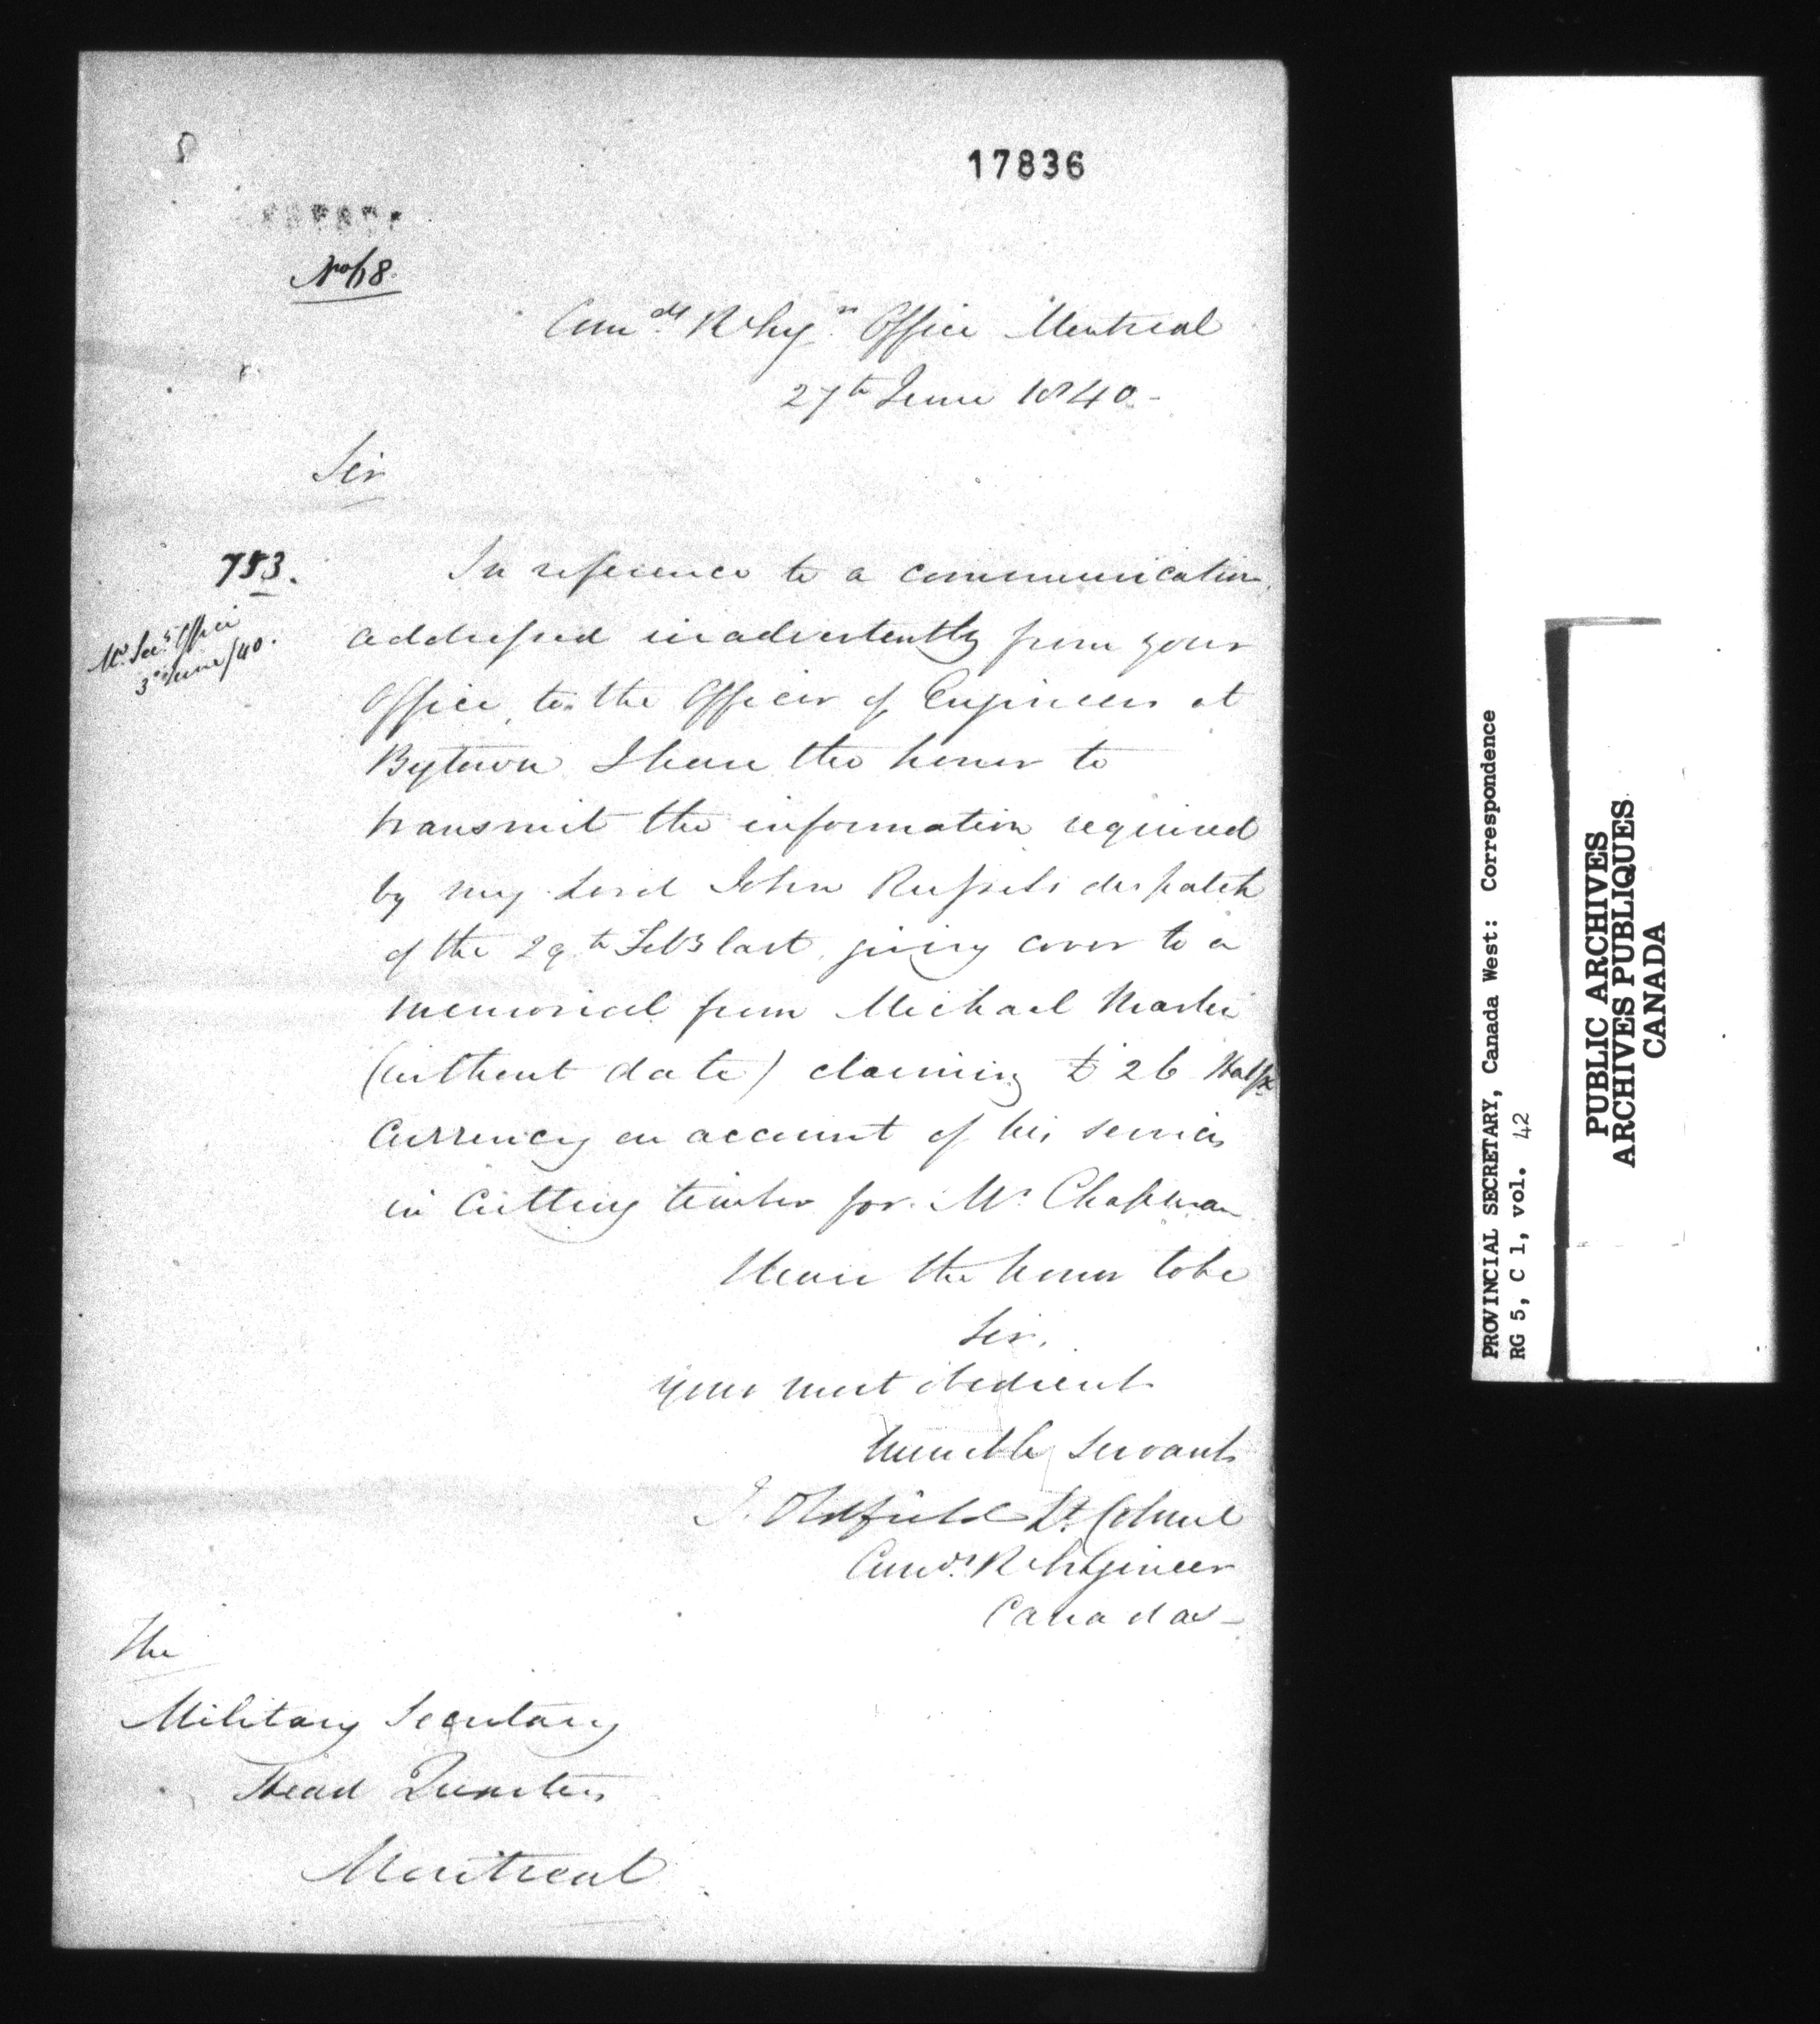 17836
No 68.
Comdg R Engr Office Montreal
27th June 1840-
Sir
753.
My. Sec. Office
3 June/40.
In reference to a communication
addressed inadvertently from your
Office, to the Officer of Engineers at
Bytown I have the honor to
transmit the information required
by my Lord John Russels despatch
of the 29th Feby last, giving cover to a
memorial from Michael
(without date) claiming £26 Halfx
Currency on account of his services
in cutting timber for Mr Chapman
I have the honor to be
Sir,
your most obedient
humble Servant
J. Oldfield Lt. Colonel
Comdg R Engineer
Canada-
The
Military Secretary
Head Quarters
Montreal
PROVINCIAL SECRETARY, Canada West: Correspondence
RG 5, C 1, vol. 42
PUBLIC ARCHIVES
ARCHIVES PUBLIQUES
CANADA